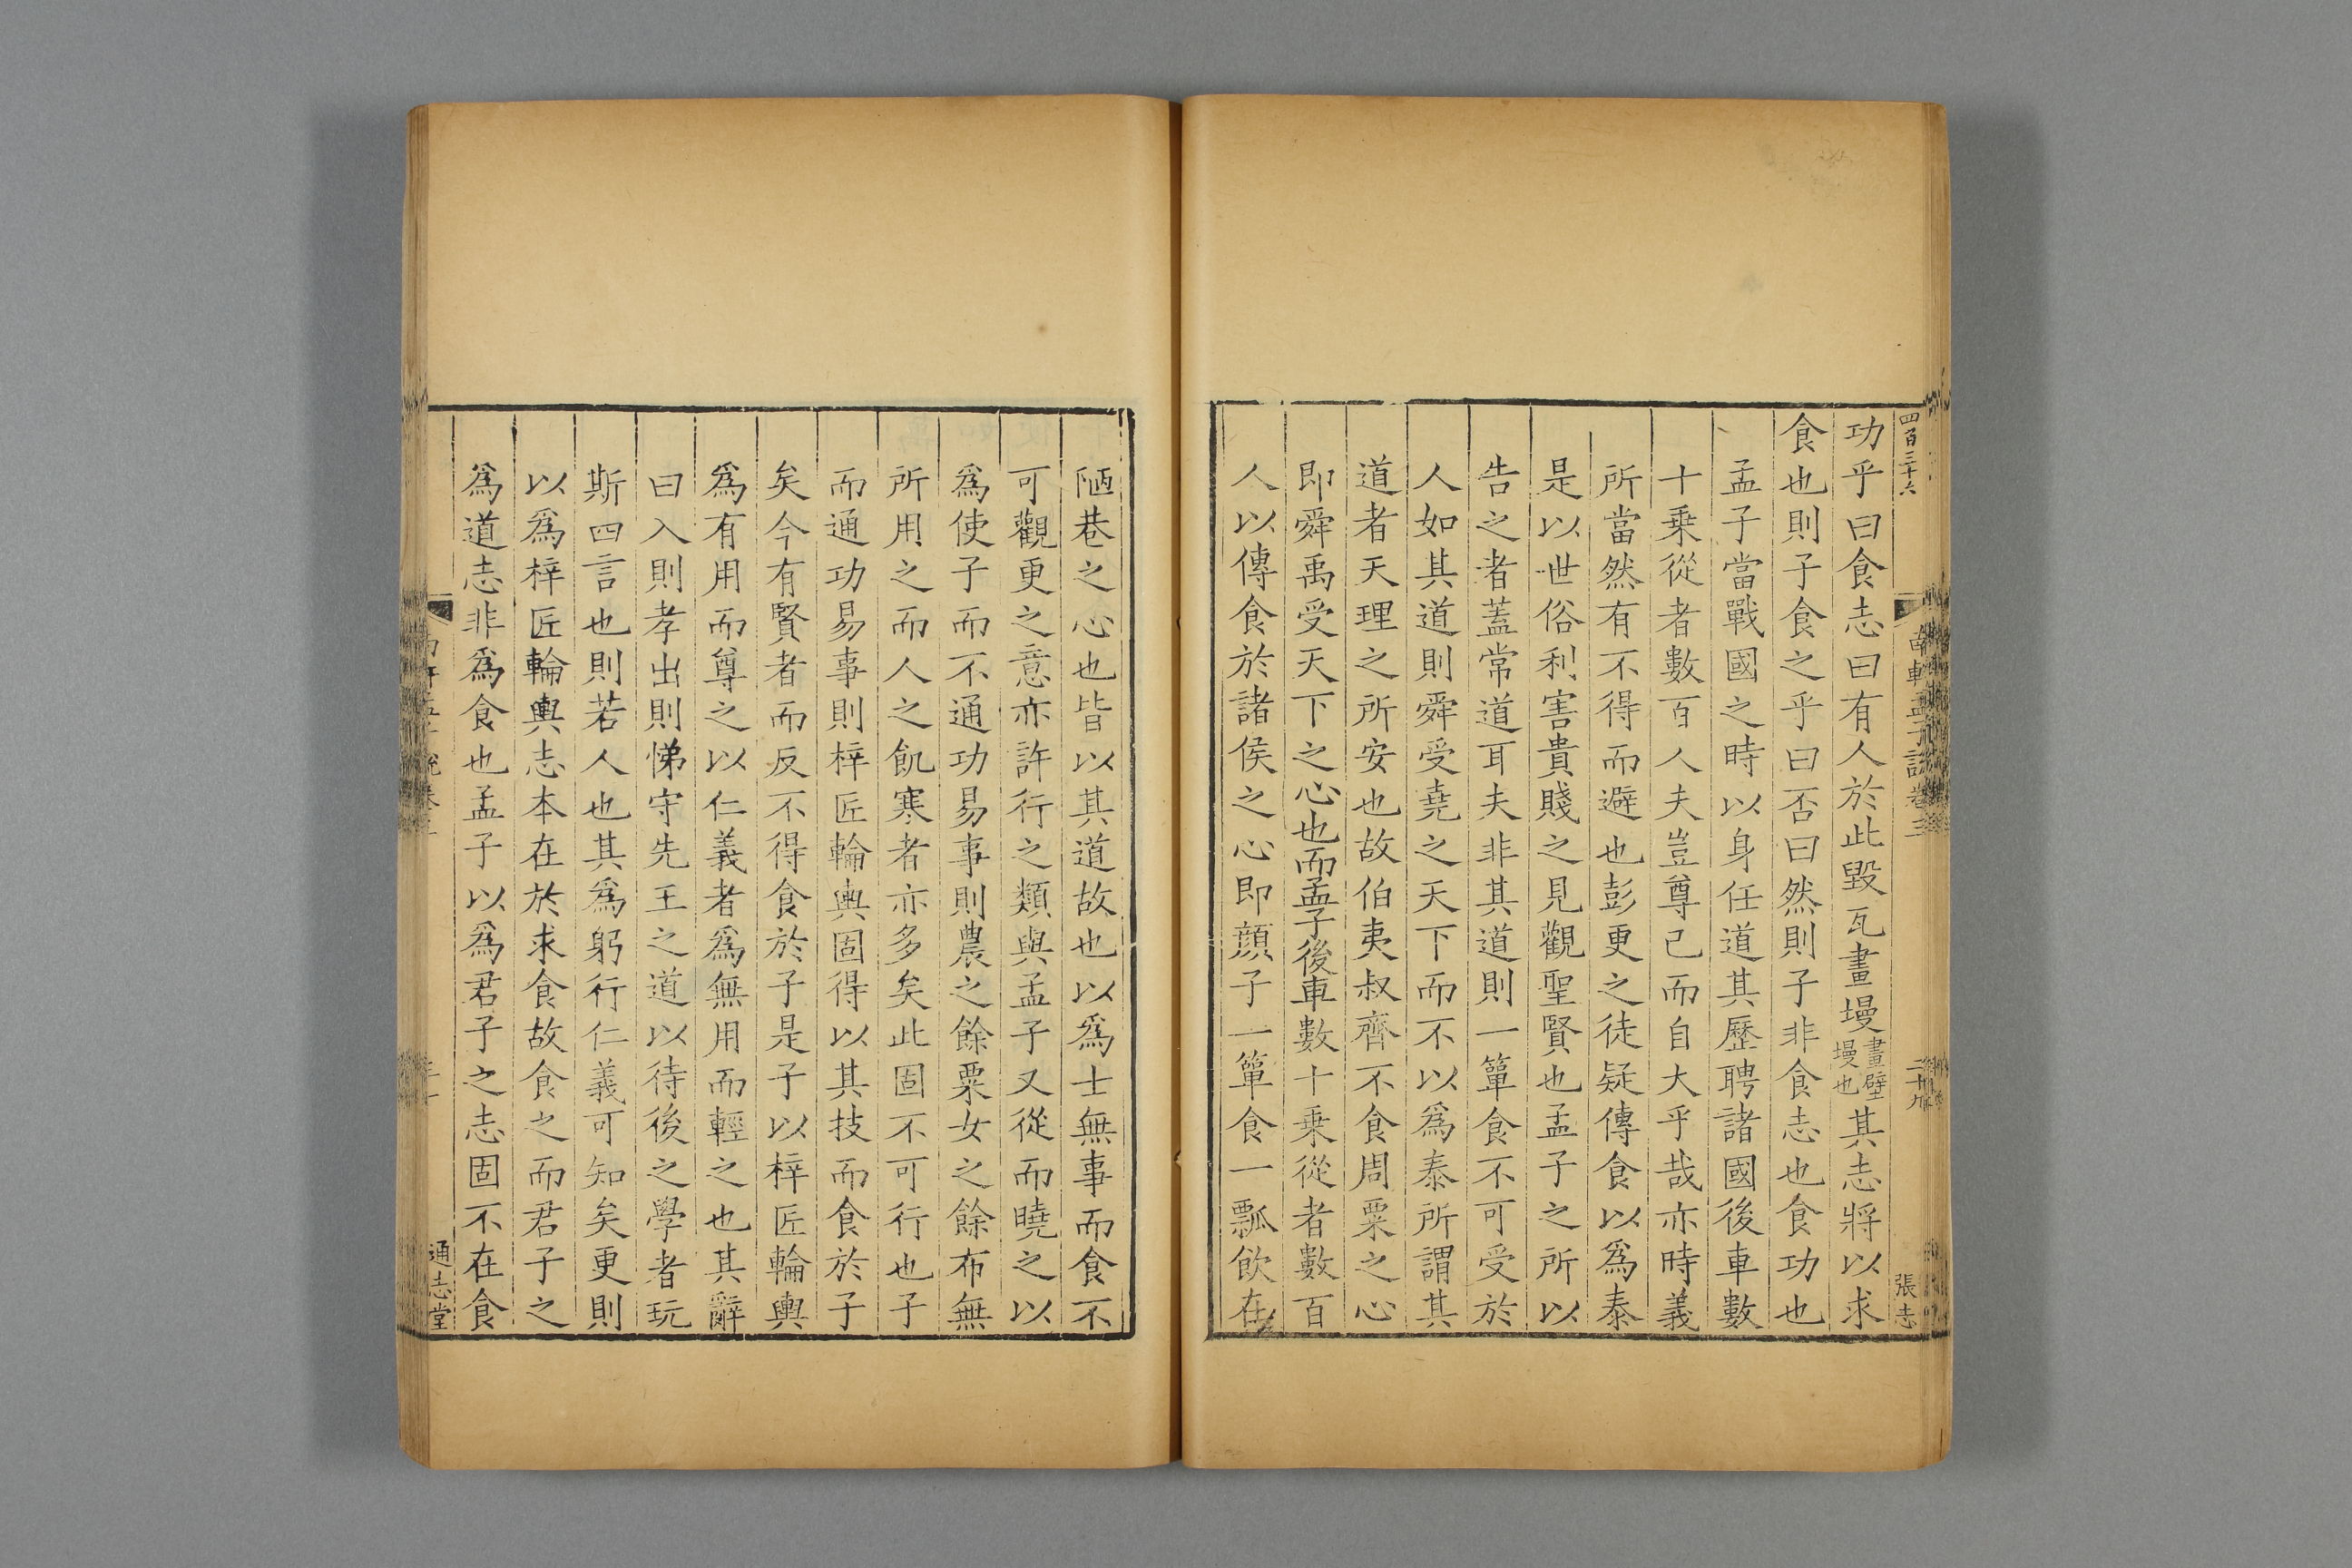 四百三十六
南軒孟子說卷三
二十九
張志
功乎曰食志曰有人於此毀瓦畫墁畫壁墁也其志將以求
食也則子食之乎曰否曰然則子非食志也食功也
孟子當戰國之時以身任道其歷聘諸國後車數
十乗從者數百人夫豈尊己而自大乎哉亦時義
所當然有不得而避也彭更之徒疑傳食以爲泰
是以世俗利害貴賤之見觀聖賢也孟子之所以
告之者蓋常道耳夫非其道則一簞食不可受於
人如其道則舜受堯之天下而不以爲泰所謂其
道者天理之所安也故伯夷叔齊不食周粟之心
即舜禹受天下之心也而孟子後車數十乗從者數百
人以傳食於諸侯之心即顔子一簞食一瓢飲在
陋巷之心也皆以其道故也以爲士無事而食不
可觀更之意亦許行之類與孟子又從而曉之以
爲使子而不通功易事則農之餘粟女之餘布無
所用之而人之飢寒者亦多矣此固不可行也子
而通功易事則梓匠輪輿固得以其技而食於子
矣今有賢者而反不得食於子是子以梓匠輪輿
爲有用而尊之以仁義者爲無用而輕之也其辭
曰入則孝出則悌守先王之道以待後之學者玩
斯四言也則若人也其爲躬行仁義可知矣更則
以爲梓匠輪輿志本在於求食故食之而君子之
爲道志非爲食也孟子以爲君子之志固不在食
通志堂